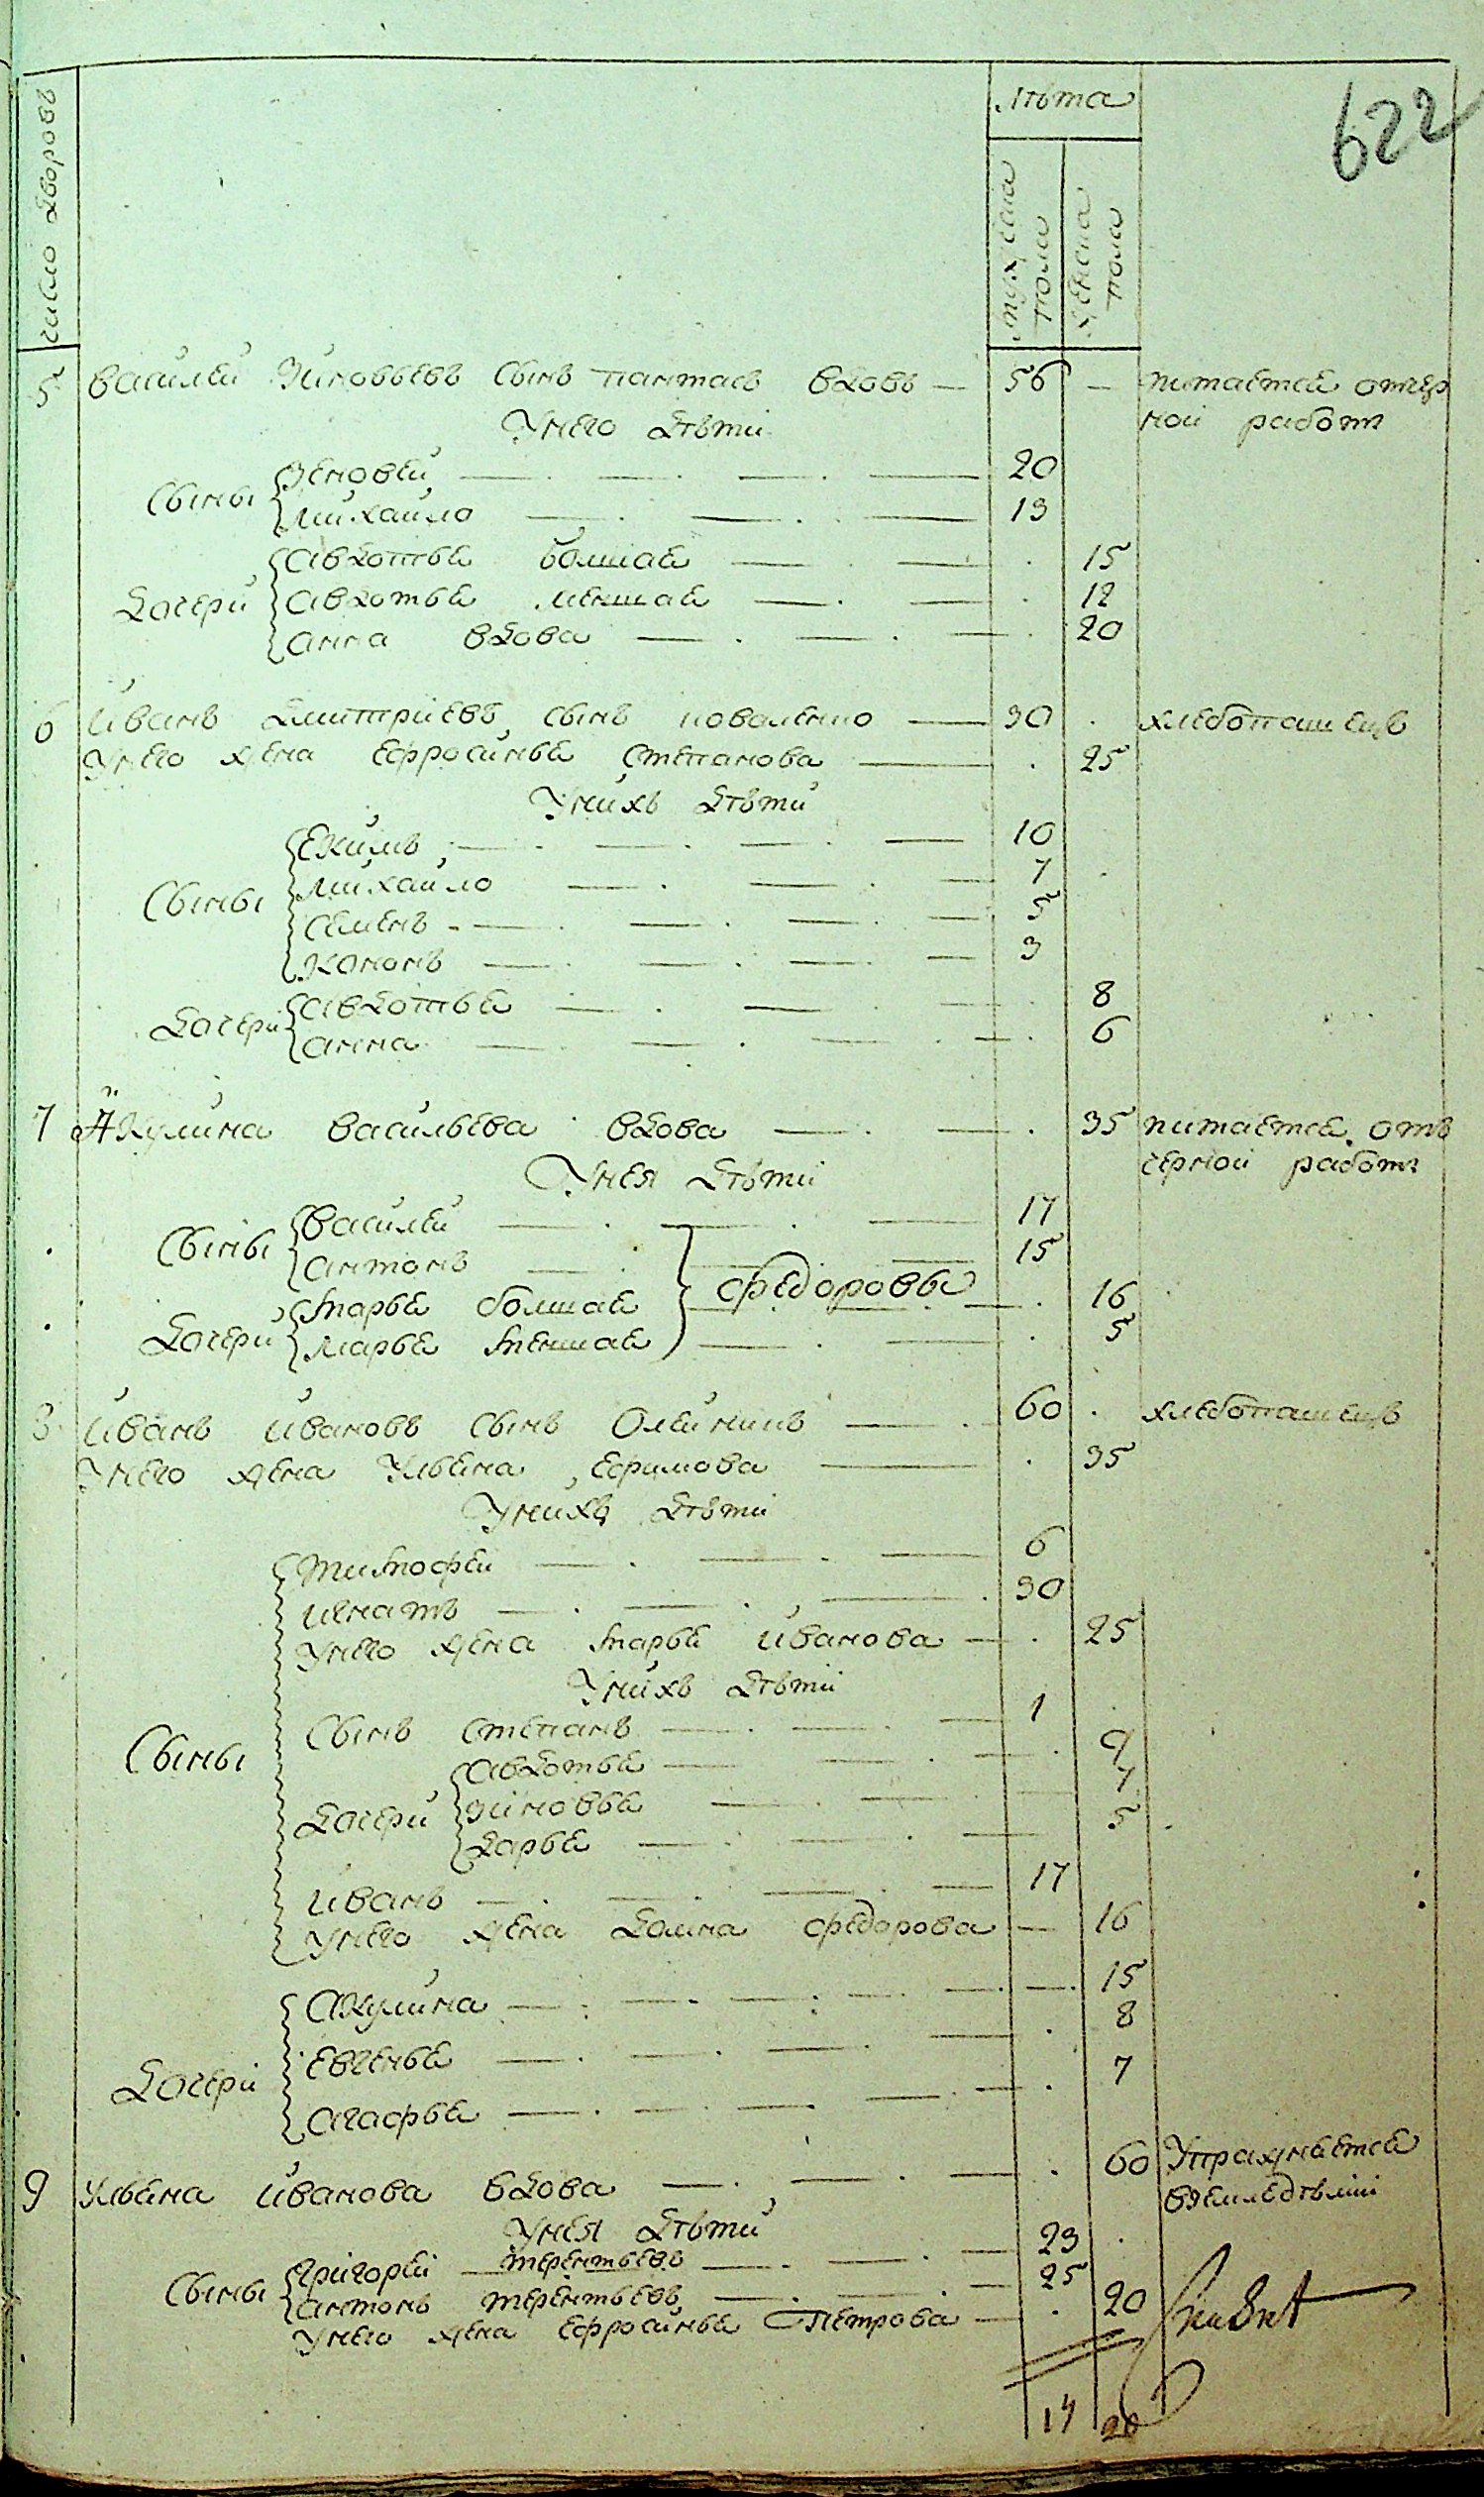 622
число дворовъ
лѣта
мужска пола
женска пола
5 Василеи Зиновьевъ сынъ вдовъ — 56 — питается отчер
У него дѣти ной работы
Сыны Зеновеи 20
Михаило 13
Дочери Авдотья болшая 15
Авдотья меншая 12
Анна вдова 20
6 Иванъ Дмитриевъ сынъ коваленко — 30 хлебопашецъ
У него жена Ефросинья Степанова 25
У нихъ дѣти
Сыны Екимъ 10
Михаило 7
Семенъ 5
Кононъ 3
Дочери Авдотья 8
Анна 6
7 Акулина Васильева вдова 35 питается отъ
У нея дѣти черной работы
Сыны Василеи 17
Антонъ 15
Федоровы
Дочери Марья болшая 16
Марья меншая 5
8 Иванъ Ивановъ сынъ Олеиникъ 60 хлебопашецъ
У него жена Ульяна Ефимова 35
У нихъ дѣти
Сыны Тимофеи 6
Игнатъ 30
У него жена Марья Иванова 25
У нихъ дѣти
Сынъ Степанъ 1
Дочери Авдотья 9
Зиновья 7
Дарья 5
Иванъ 17
У него жена Домна Федорова 16
Дочери Акулина 15
Евгенья 8
Агафья 7
9 Ульяна Иванова вдова 60 Упражняется
У нея дѣти вземледѣлии
Сыны Григореи Терентьевъ 23
Антонъ Терентьевъ 25
У него жена Ефросинья Петрова 20
19 20